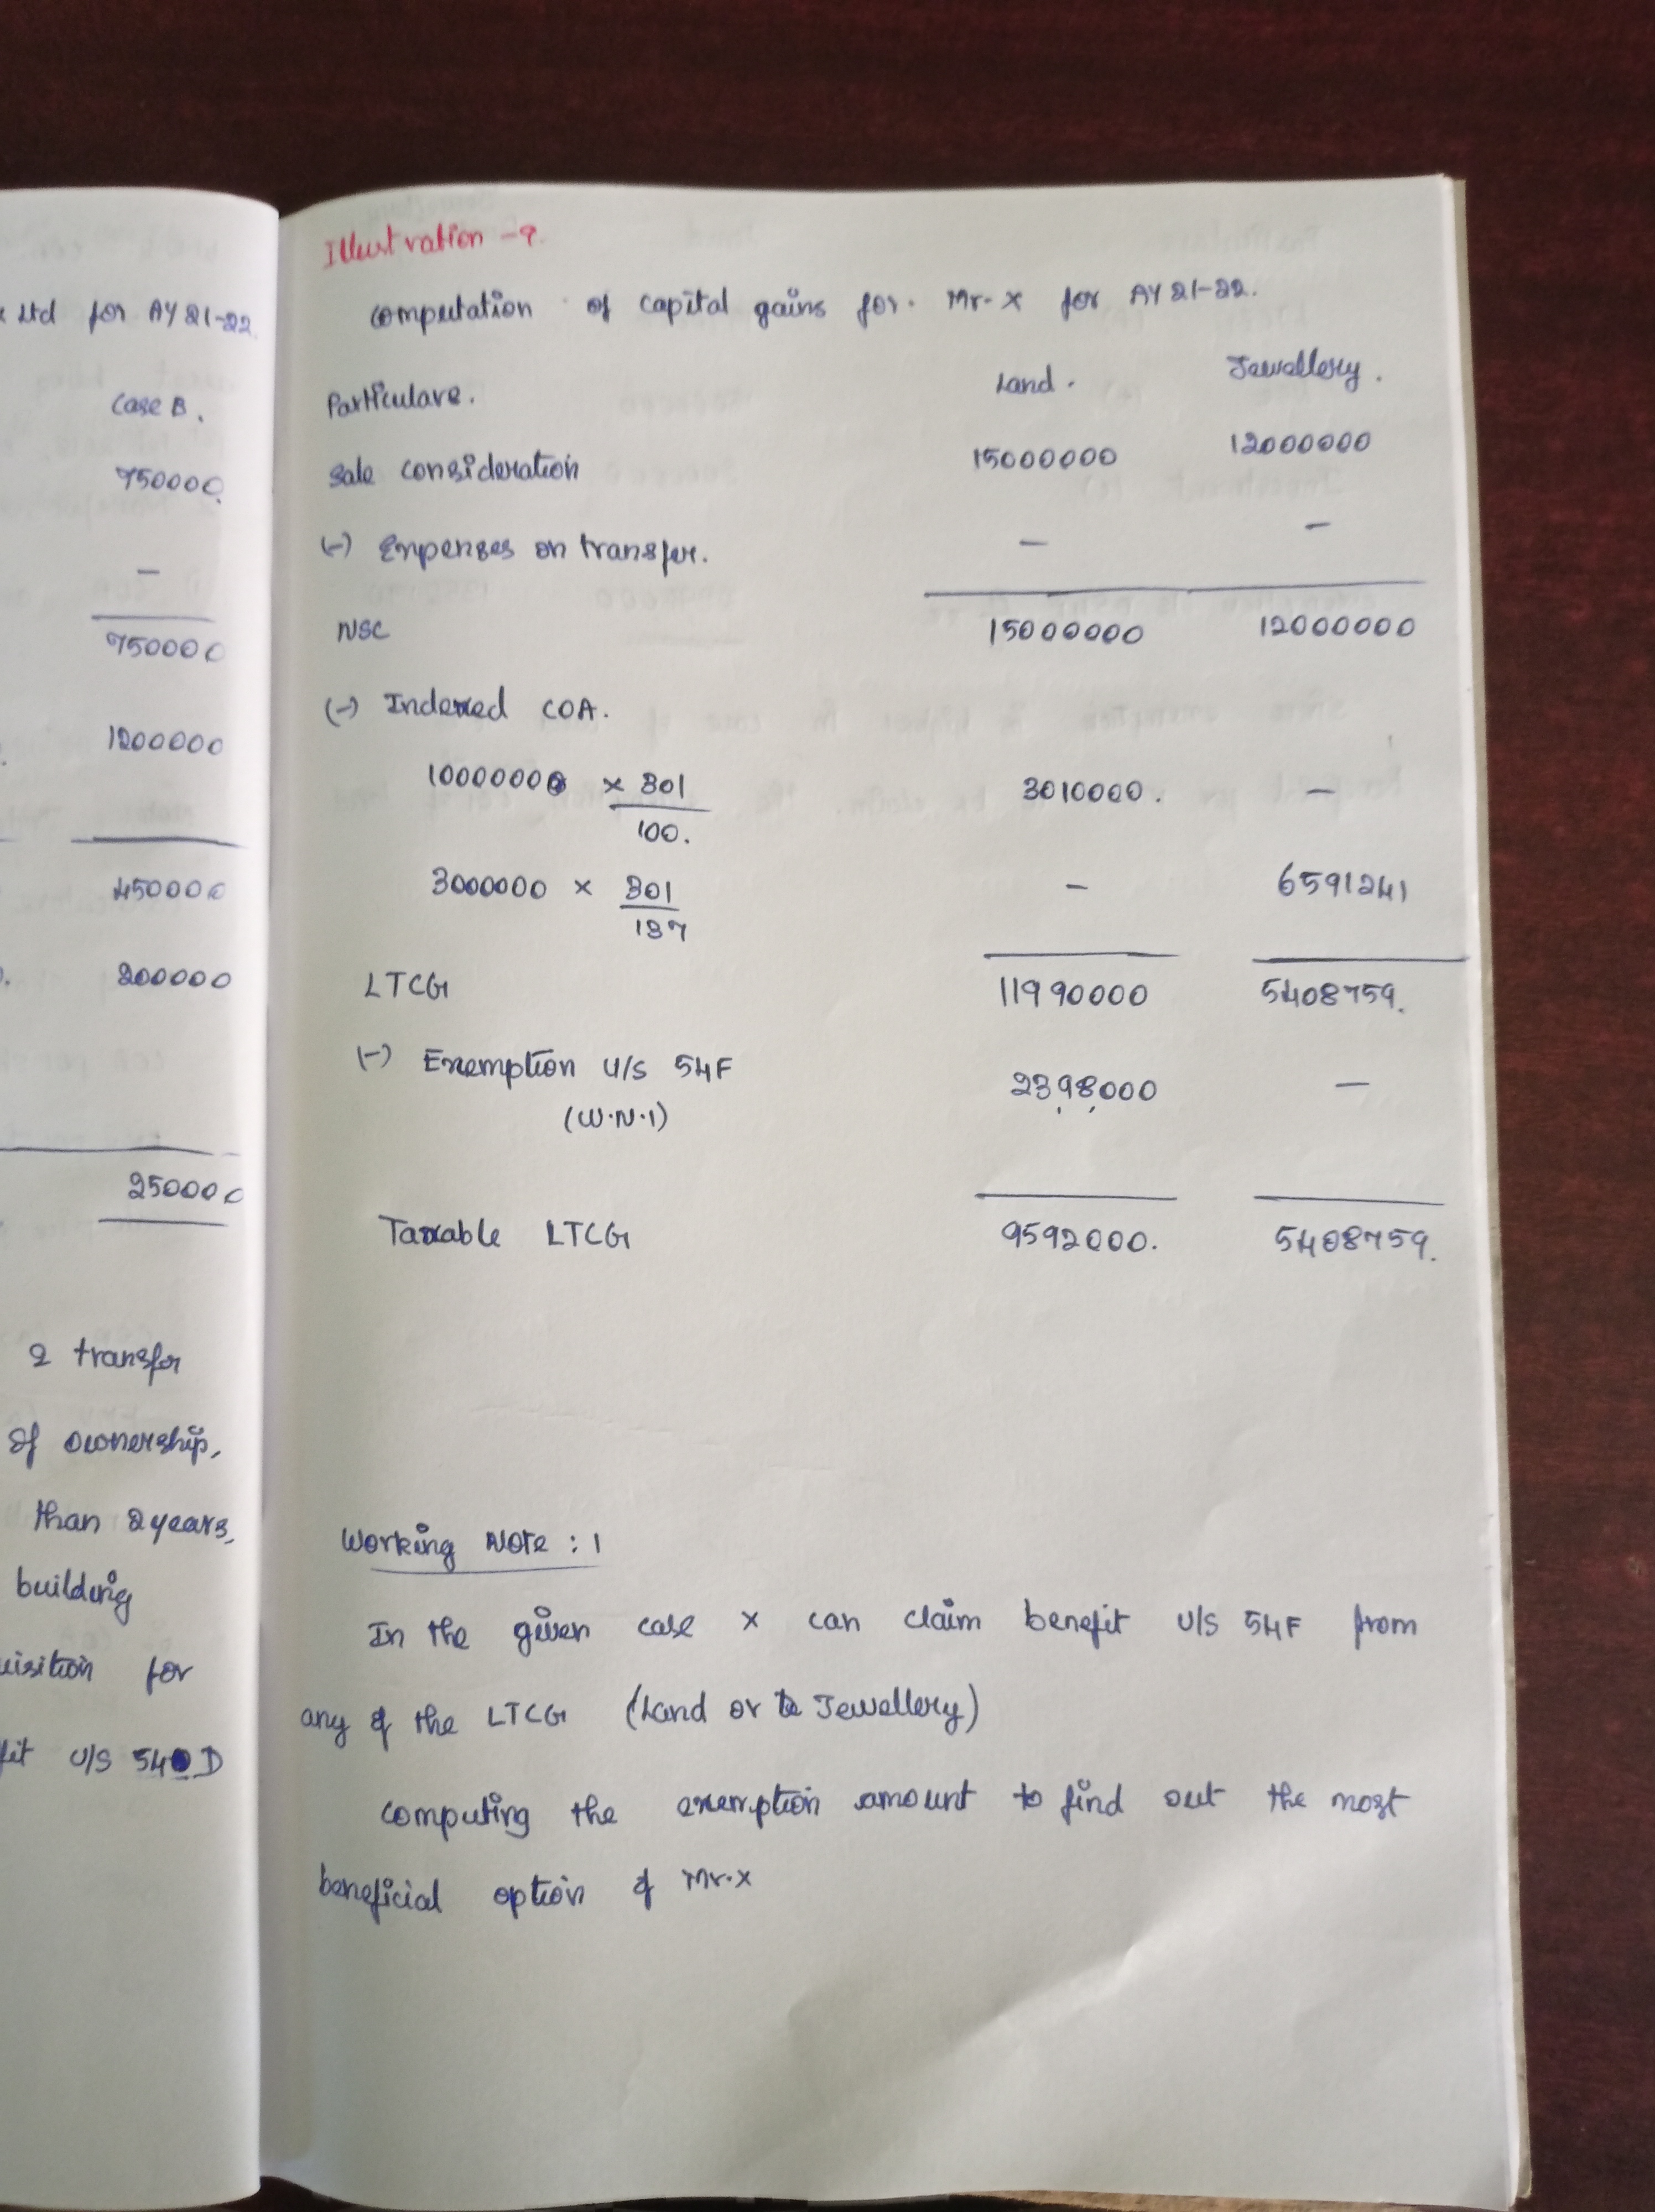 Ltd for AY 21-22.
Case B.
750000.
—
750000
1200000
450000
200000
250000
2 transfer
of ownership,
than 2 years,
building
for
U/S 54 D
Illustration - 9.
computation of capital gains for Mr. X for AY 21-22.
Particulars. Land. Jewellery.
Sale consideration 15000000 12000000
(-) Expenses on transfer. — —
NSC 15000000 12000000
(-) Indexed COA.
1000000 × 301 3010000. —
100.
3000000 × 301 — 6591241
137
LTCG 11990000 5408759.
(-) Exemption U/S 54F 2398000 —
(W.N.1)
Taxable LTCG 9592000. 5408759.
Working Note : 1
In the given case X can claim benefit U/S 54F from
any of the LTCG (Land or Jewellery)
computing the exemption amount to find out the most
beneficial option of Mr. X